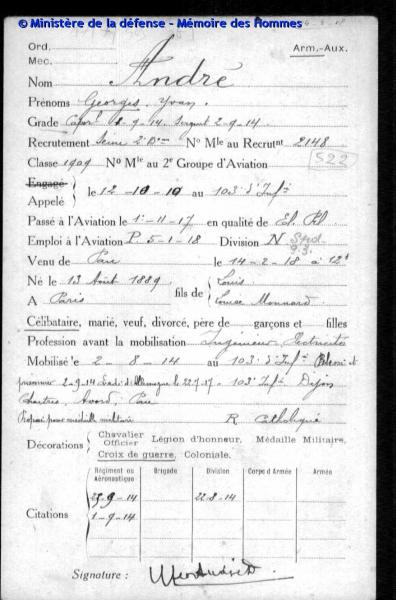 © Ministère de la défense - Mémoire des Hommes
Ord.
Arm.-Aux.
Mec.
Nom André
Prénoms Georges, Yvan.
Grade Capor 2-9-14. Sergent 2-9-14.
Recrutement Seine 2e Bon No Mle au Recrutnt 2148
Classe 1909 No Mle au 2e Groupe d'Aviation
522
Engagé
Appelé
le 12-10-10 au 103e d'Infie
Passé à l'Aviation le 1-11-17 en qualité de El. Pil.
Emploi à l'Aviation P. 5-1-18 Division N Spad
Venu de Pau le 14-2-18 à
Né le 13 Août 1889
A Paris
fils de
Louis
Louise Monnard
Célibataire, marié, veuf, divorcé, père de garçons et filles
Profession avant la mobilisation Ingénieur Electricité
Mobilisé le 2-8-14 au 103e d'Infie Blessé et
prisonnier 2-9-14 d'Allemagne le 22-7-17 - 103e Infie Dijon
Chartres, Avord, Pau
Proposé pour médaille militaire R Catholique
Décorations
Chevalier
Officier
Légion d'honneur, Médaille Militaire,
Croix de guerre, Coloniale.
Régiment ou Aéronautique Brigade Division Corps d'Armée Armée
Citations
-9-14 22-8-14
1-9-14
Signature :